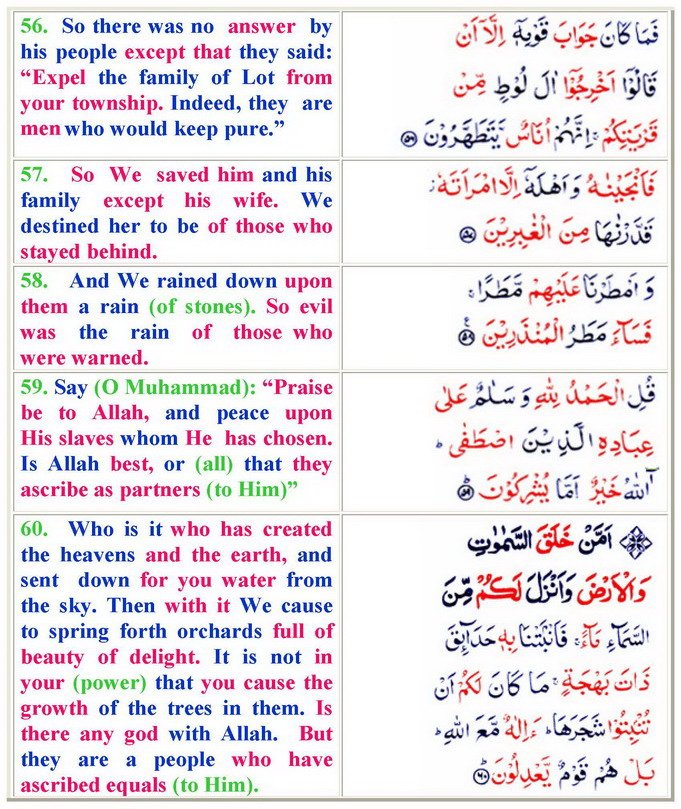 56. So there was no answer by
his people except that they said:
“Expel the family of Lot from
your township. Indeed, they are
men who would keep pure.”
فَمَا كَانَ جَوَابَ قَوْمِهٖۤ اِلَّاۤ اَنْ
قَالُوْۤا اَخْرِجُوْۤا اٰلَ لُوْطٍ مِّنْ
قَرْيَتِكُمْ ۚ اِنَّهُمْ اُنَاسٌ يَّتَطَهَّرُوْنَ ۝۵۶
57. So We saved him and his
family except his wife. We
destined her to be of those who
stayed behind.
فَاَنْجَيْنٰهُ وَ اَهْلَهٗۤ اِلَّا امْرَاَتَهٗ ؗ
قَدَّرْنٰهَا مِنَ الْغٰبِرِيْنَ ۝۵۷
58. And We rained down upon
them a rain (of stones). So evil
was the rain of those who
were warned.
وَ اَمْطَرْنَا عَلَيْهِمْ مَّطَرًا ۚ
فَسَآءَ مَطَرُ الْمُنْذَرِيْنَ ۝۵۸
59. Say (O Muhammad): “Praise
be to Allah, and peace upon
His slaves whom He has chosen.
Is Allah best, or (all) that they
ascribe as partners (to Him)”
قُلِ الْحَمْدُ لِلّٰهِ وَ سَلٰمٌ عَلٰى
عِبَادِهِ الَّذِيْنَ اصْطَفٰى ؕ
آٰللّٰهُ خَيْرٌ اَمَّا يُشْرِكُوْنَ ۝۵۹
60. Who is it who has created
the heavens and the earth, and
sent down for you water from
the sky. Then with it We cause
to spring forth orchards full of
beauty of delight. It is not in
your (power) that you cause the
growth of the trees in them. Is
there any god with Allah. But
they are a people who have
ascribed equals (to Him).
اَمَّنْ خَلَقَ السَّمٰوٰتِ
وَالْاَرْضَ وَاَنْزَلَ لَكُمْ مِّنَ
السَّمَآءِ مَآءً ۚ فَاَنْۢبَتْنَا بِهٖ حَدَآئِقَ
ذَاتَ بَهْجَةٍ ۚ مَا كَانَ لَكُمْ اَنْ
تُنْۢبِتُوْا شَجَرَهَا ؕ ءَاِلٰهٌ مَّعَ اللّٰهِ ؕ
بَلْ هُمْ قَوْمٌ يَّعْدِلُوْنَ ؕ۝۶۰